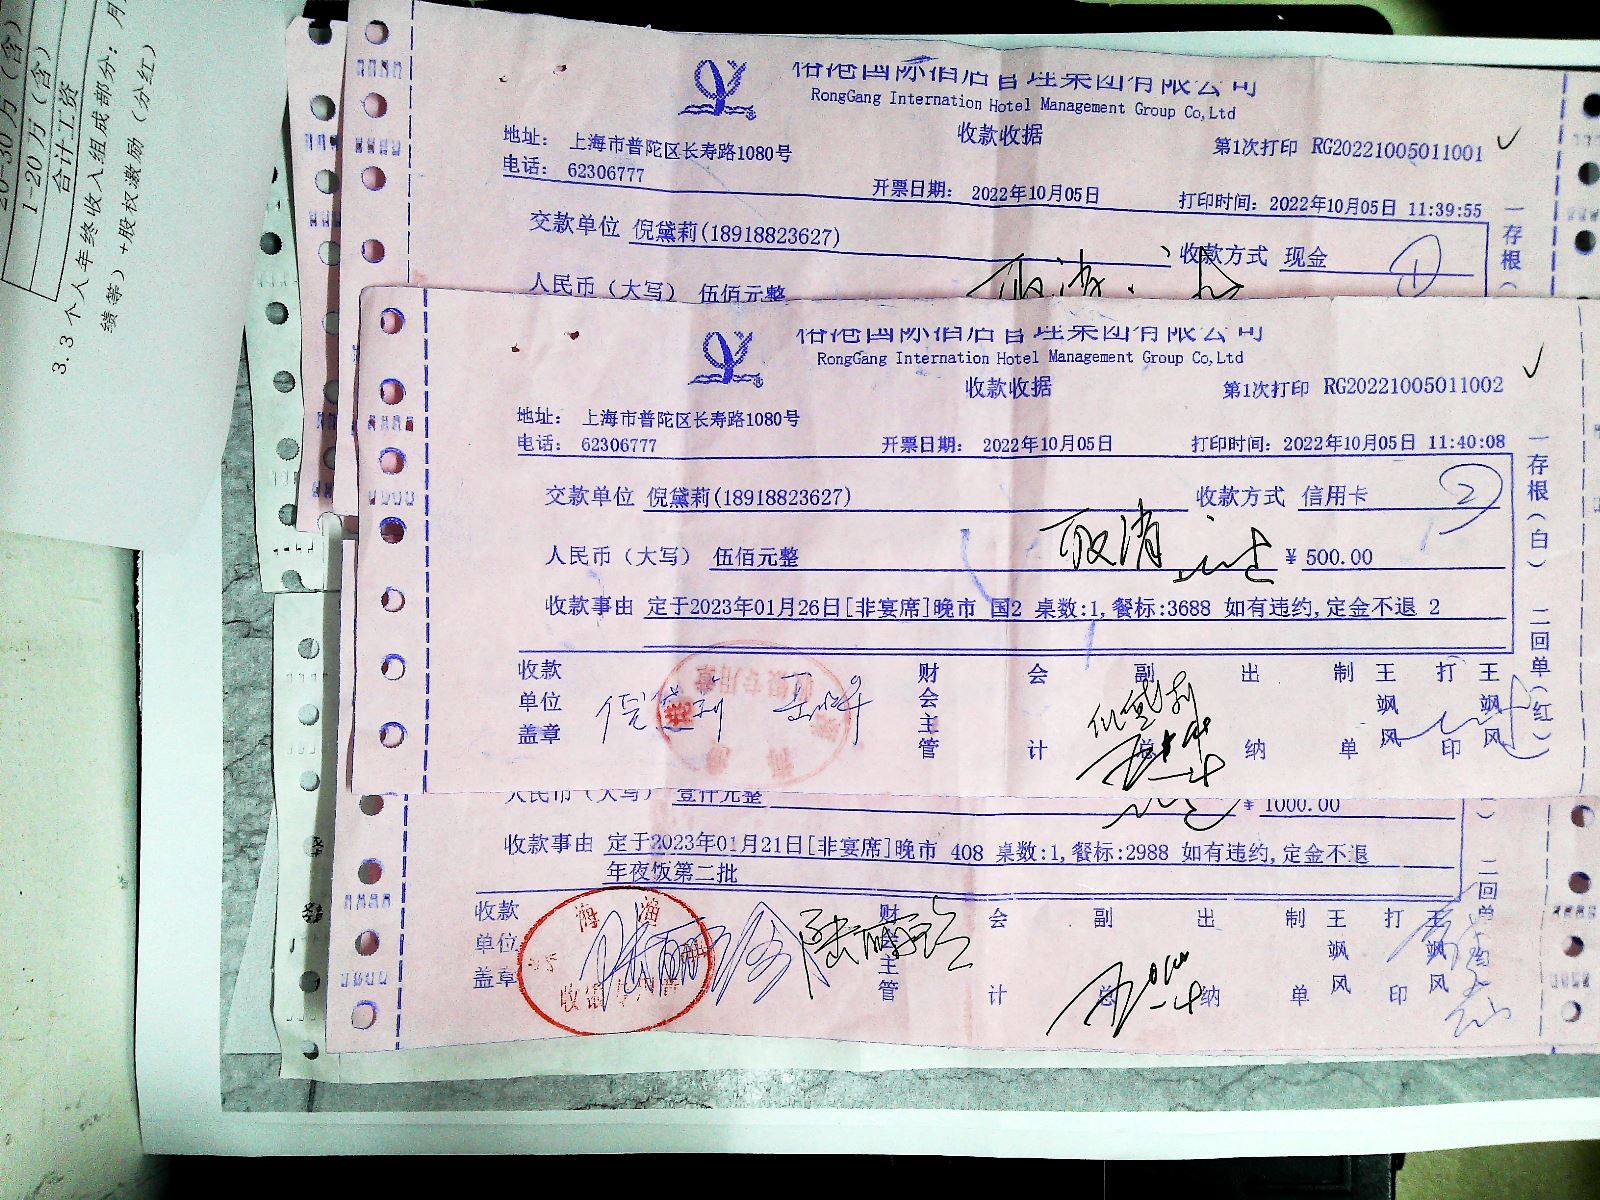 20-30万(含)
1-20万(含)
合计工资
3.3 个人年终收入组成部分:月
绩等)+股权激励(分红)
裕港国际酒店管理集团有限公司
RongGang Internation Hotel Management Group Co,Ltd
收款收据
第1次打印 RG20221005011001
地址: 上海市普陀区长寿路1080号
电话: 62306777
开票日期: 2022年10月05日
打印时间: 2022年10月05日 11:39:55
交款单位 倪黛莉(18918823627)
收款方式 现金
1
人民币(大写) 伍佰元整
取消
一存根(
裕港国际酒店管理集团有限公司
RongGang Internation Hotel Management Group Co,Ltd
收款收据
第1次打印 RG20221005011002
地址: 上海市普陀区长寿路1080号
电话: 62306777
开票日期: 2022年10月05日
打印时间: 2022年10月05日 11:40:08
交款单位 倪黛莉(18918823627)
收款方式 信用卡
2
人民币(大写) 伍佰元整
取消
¥ 500.00
收款事由 定于2023年01月26日[非宴席]晚市 国2 桌数:1,餐标:3688 如有违约,定金不退 2
收款单位盖章
倪黛莉
财会主管
会计
副总
倪黛莉
出纳
制单
王飒风
打印
王飒风
一存根(白) 二回单(红)
人民币(大写) 壹仟元整
¥ 1000.00
收款事由 定于2023年01月21日[非宴席]晚市 408 桌数:1,餐标:2988 如有违约,定金不退
年夜饭第二批
收款单位盖章
财会主管
会计
副总
出纳
制单
王飒风
打印
王飒风
) 二回单